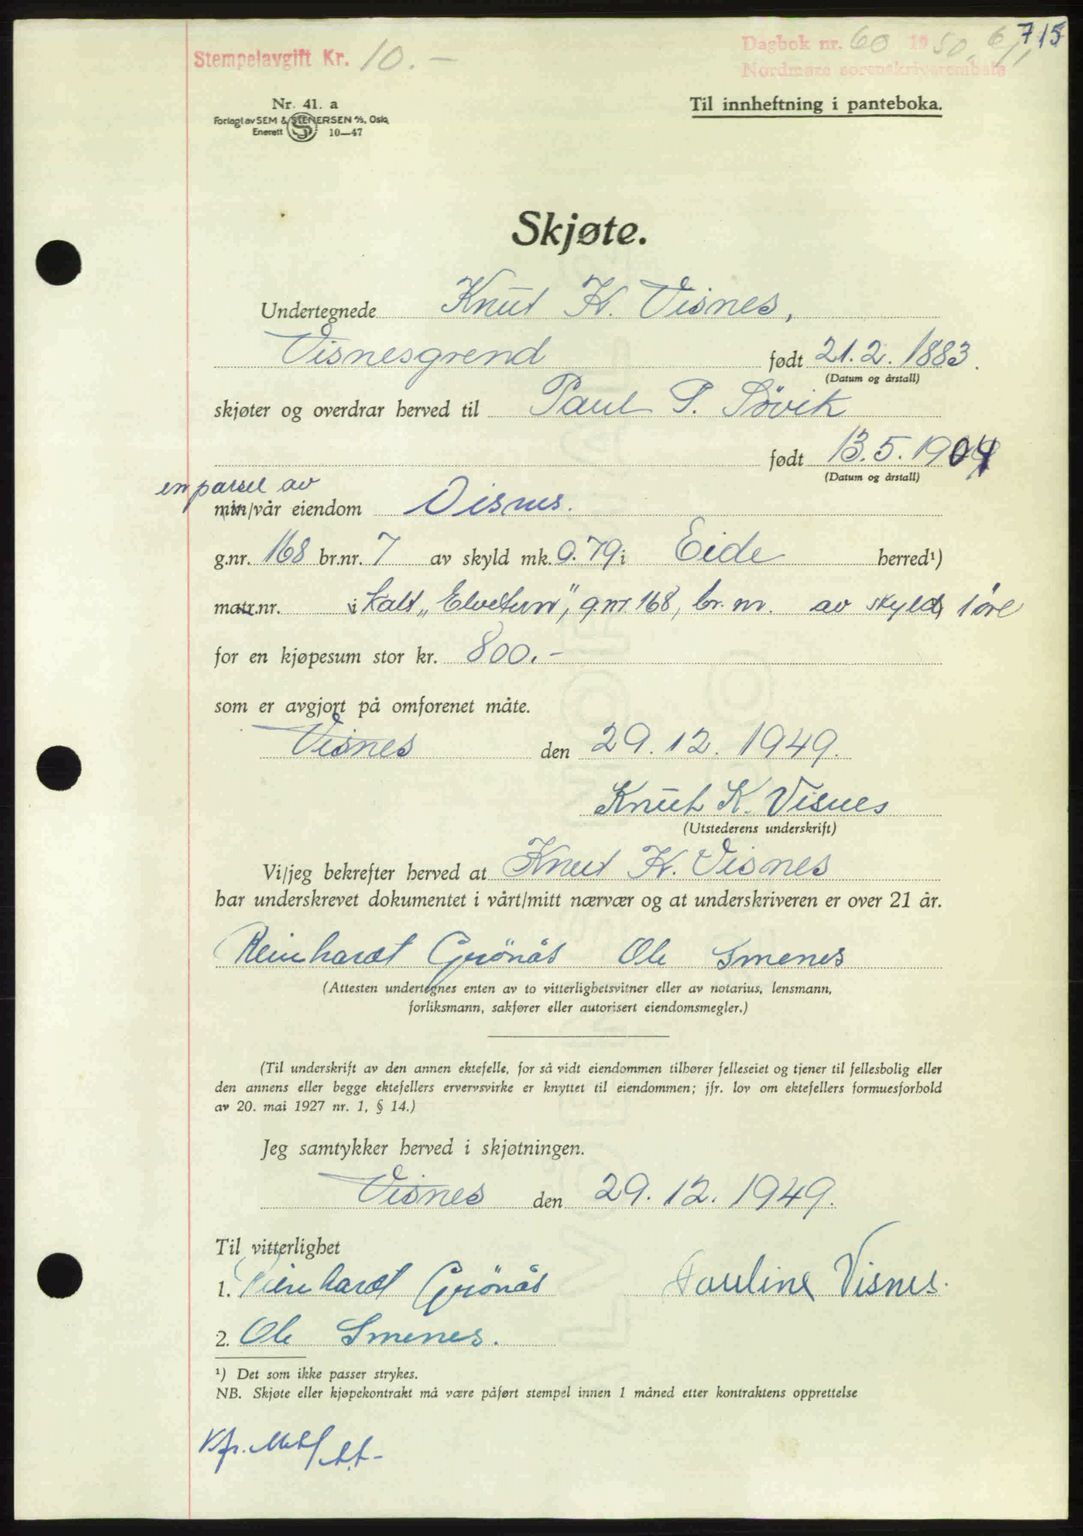 715
Stempelavgift Kr. 10.-
Dagbok nr. 60 1950, 6/1
Nordmøre sorenskriverembete
Nr. 41. a
Forlagt av SEM & STENERSEN A/S, Oslo
Enerett S 10—47
Til innheftning i panteboka.
Skjøte.
Undertegnede Knut K. Visnes,
Visnesgrend født 21.2.1883.
(Datum og årstall)
skjøter og overdrar herved til Paul P. Søvik
født 13.5.1904
(Datum og årstall)
en parsel av
min/vår eiendom Visnes.
g.nr. 168 br.nr. 7 av skyld mk. 0.79 i Eide herred¹)
matr.nr. i kalt „Elvetun", g nr 168, br. nr. av skyld 1 øre
for en kjøpesum stor kr. 800.-
som er avgjort på omforenet måte.
Visnes den 29.12.1949.
Knut K. Visnes
(Utstederens underskrift)
Vi/jeg bekrefter herved at Knut K. Visnes
har underskrevet dokumentet i vårt/mitt nærvær og at underskriveren er over 21 år.
Reinhardt Grönås Ole Smenes
(Attesten undertegnes enten av to vitterlighetsvitner eller av notarius, lensmann,
forliksmann, sakfører eller autorisert eiendomsmegler.)
(Til underskrift av den annen ektefelle, for så vidt eiendommen tilhører felleseiet og tjener til fellesbolig eller
den annens eller begge ektefellers ervervsvirke er knyttet til eiendommen; jfr. lov om ektefellers formuesforhold
av 20. mai 1927 nr. 1, § 14.)
Jeg samtykker herved i skjøtningen.
Visnes den 29.12.1949.
Til vitterlighet
1. Reinhardt Grönås Pauline Visnes.
2. Ole Smenes.
¹) Det som ikke passer strykes.
NB. Skjøte eller kjøpekontrakt må være påført stempel innen 1 måned etter kontraktens opprettelse